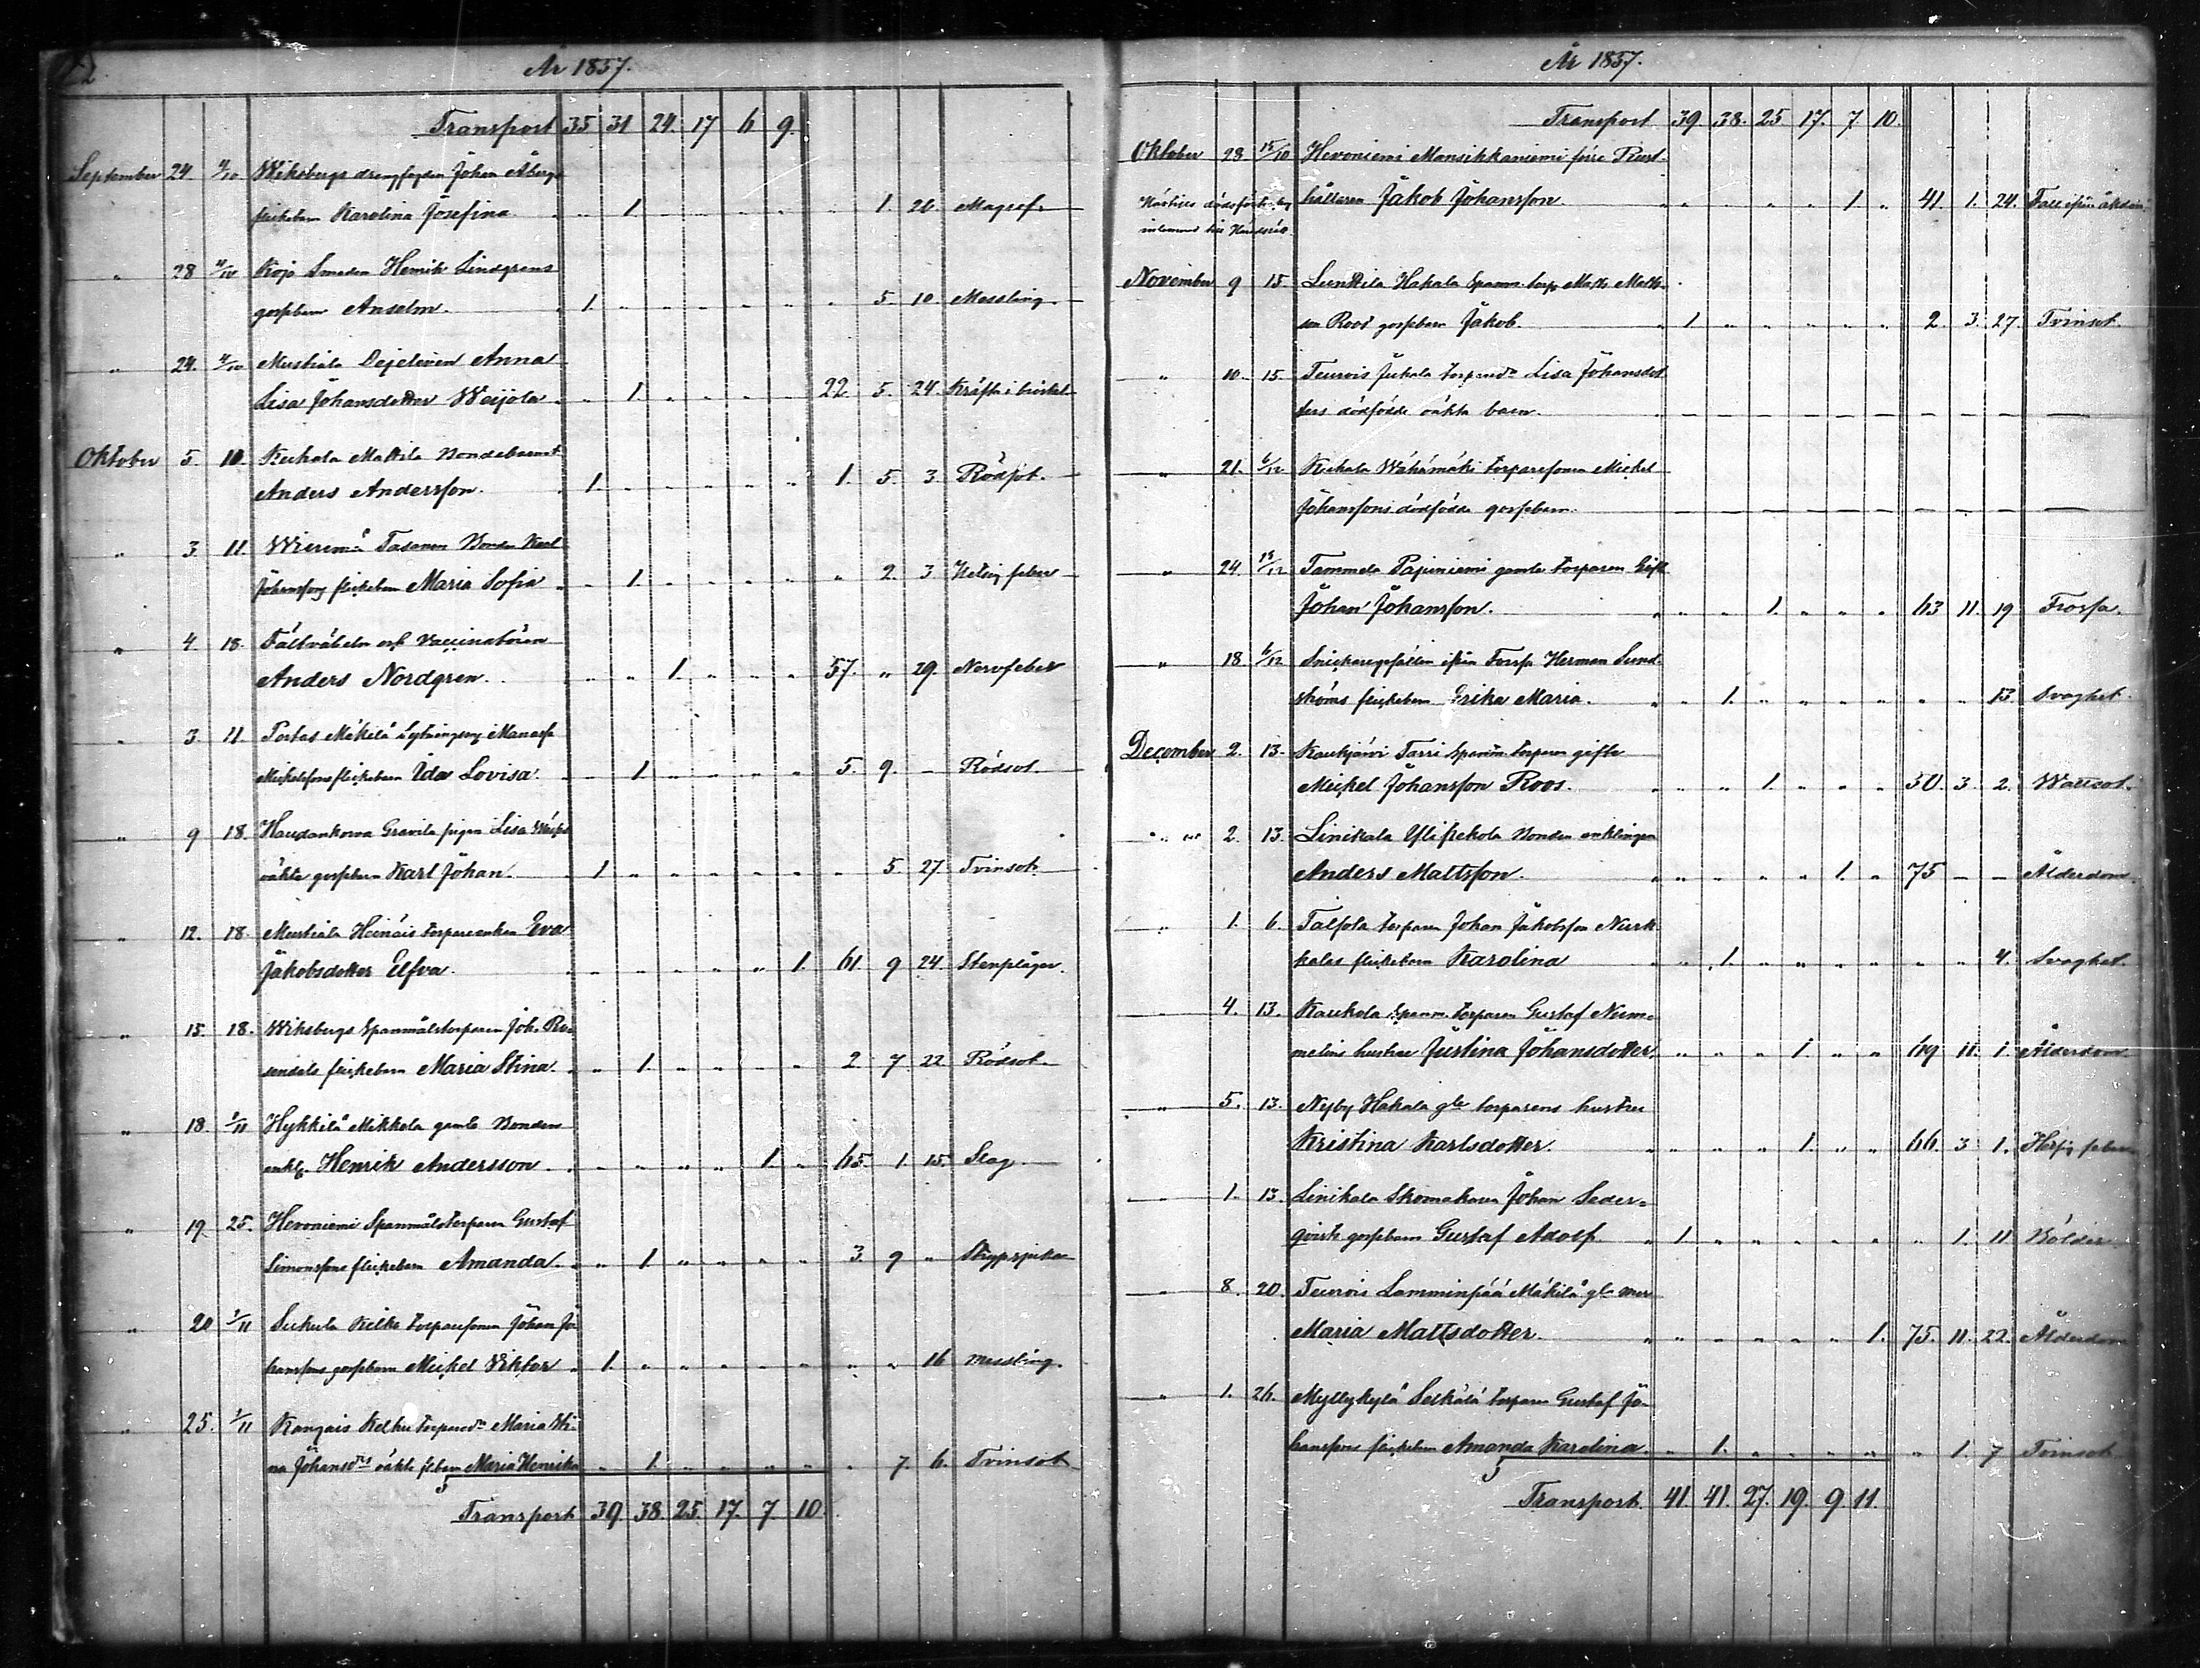 2
År 1857.
Transport 35 31 24. 17 6 9.
September 24. 4/10 Wiksbergs drengfogden Johan Åbergs
flickebarn Karolina Josefina 1. 1. 26 Magref.
" 28 4/10 Kojo Smeden Henrik Lindgrens
gossebarn Anselm. 1. 5. 10. Messling
" 24. 4/10 Mustiala Dejeleven Anna
Lisa Johansdotter Weijola 1. 22. 5. 24. Kräfta i bröstet
Oktober 5. 10. Kuhala Mattila Bondebarnet
Anders Andersson. 1. 1. 5. 3. Rödsot.
" 3. 11. Wieremä Tasanen Bonden Karl
Johanssons flickebarn Maria Sofia 1. " 2. 3 Hetsig feber
" 4. 18. Fältväbeln och Vaccinatören
Anders Nordgren. 1. 57. " 29. Nervfeber
" 3. 11. Portas Mäkilä Manass
Mickelssons flickebarn Ida Lovisa. 1. 5. 9. – Rödsot.
" 9 18. Haudankorva Gravila pigan Lisa
oäkta gossebarn Karl Johan. 1 5. 27. Tvinsot
" 12. 18. Mustiala Heinäis torpareenkan Eva
Jakobsdotter Elfva. 1. 61. 9 24. Stenplågor.
" 15. 18. Wiksbergs Spanmålstorparen Joh. Ro-
sendals flickebarn Maria Stina. 1. 2 7. 22. Rödsot
" 18. 1/11 Hykkilä Mikkola gamle Bonden
enkl. Henrik Andersson. 1. 65. 1. 15. Slag.
" 19. 25. Hevoniemi Spanmålstorparen Gustaf
Simonssons flickebarn Amanda. 1. 3. 9 " Strypsjuka
" 20 1/11 Sukula Kilki torparesonen Johan Jo-
hanssons gossebarn Mickel Viktor 1. " " 16 messling.
" 25. 1/11 Kangais Kelhu torparedr Maria Sti-
na Johansdrs oäkta fl.barn Maria Henrika 1. " 7. 6. Tvinsot
Transport 39. 38. 25. 17. 7. 10.
År 1857.
Transport 39. 38. 25 17. 7. 10.
Oktober 28 15/10 Hevoniemi Mansikkaniemi förre Rust-
hållaren Jakob Johansson 1. 41. 1. 24. Fall ifrån åkdon
November 9 15. Lunttila Hakala Spanm. torp. Matts Matts-
son Roos gossebarn Jakob. 1. 2. 3. 27. Tvinsot.
" 10. 15. Teurois Jukala torparedr Lisa Johansdot-
ters dödfödde oäkta barn.
" 21. 6/12 Kuhala Wähämäki torparesonen Mickel
Johanssons dödfödda gossebarn.
" 24. 13/12 Tammela Pajuniemi gamle torparen Gift
Johan Johansson. 1. 63 11. 19 Frossa.
" 18 6/12 Snickaregesällen ifrån Forssa Herman Sund-
ströms flickebarn Erika Maria. 1. " " 13 Svaghet.
December 2. 13. Kaukjärvi Torri Spanm. torparen gifte
Mickel Johansson Roos. 1. 50. 3. 2. Wattsot.
" 2. 13. Linikala Ylipekola Bonden enklingen
Anders Mattsson. 1. 75 – – Ålderdom.
" 1. 6. Talpola torparen Johan Jakobsson Nurk-
kalas flickebarn Karolina 1. " " 4. Svaghet.
" 4. 13. Kaukola Spanm. torparen Gustaf Num-
melins hustru Justina Johansdotter. 1. 69 11. 1. Ålderdom
" 5. 13. Nyby Hakala gle torparens hustru
Kristina Karlsdotter. 1. 66. 3 1. Hetsig feber
1. 13. Linikala Skomakaren Johan Seder-
qvists gossebarn Gustaf Adolf 1 " 1. 11 Bölder
8. 20. Teurois Lamminpää Mäkilä gla mor
Maria Mattsdotter. 1. 75. 11. 22. Ålderdom
" 1. 26. Myllykylä Selkälä torparen Gustaf Jo-
hanssons flickebarn Amanda Karolina 1. " 1. 7 Tvinsot
Transport. 41. 41. 27. 19. 9 11.